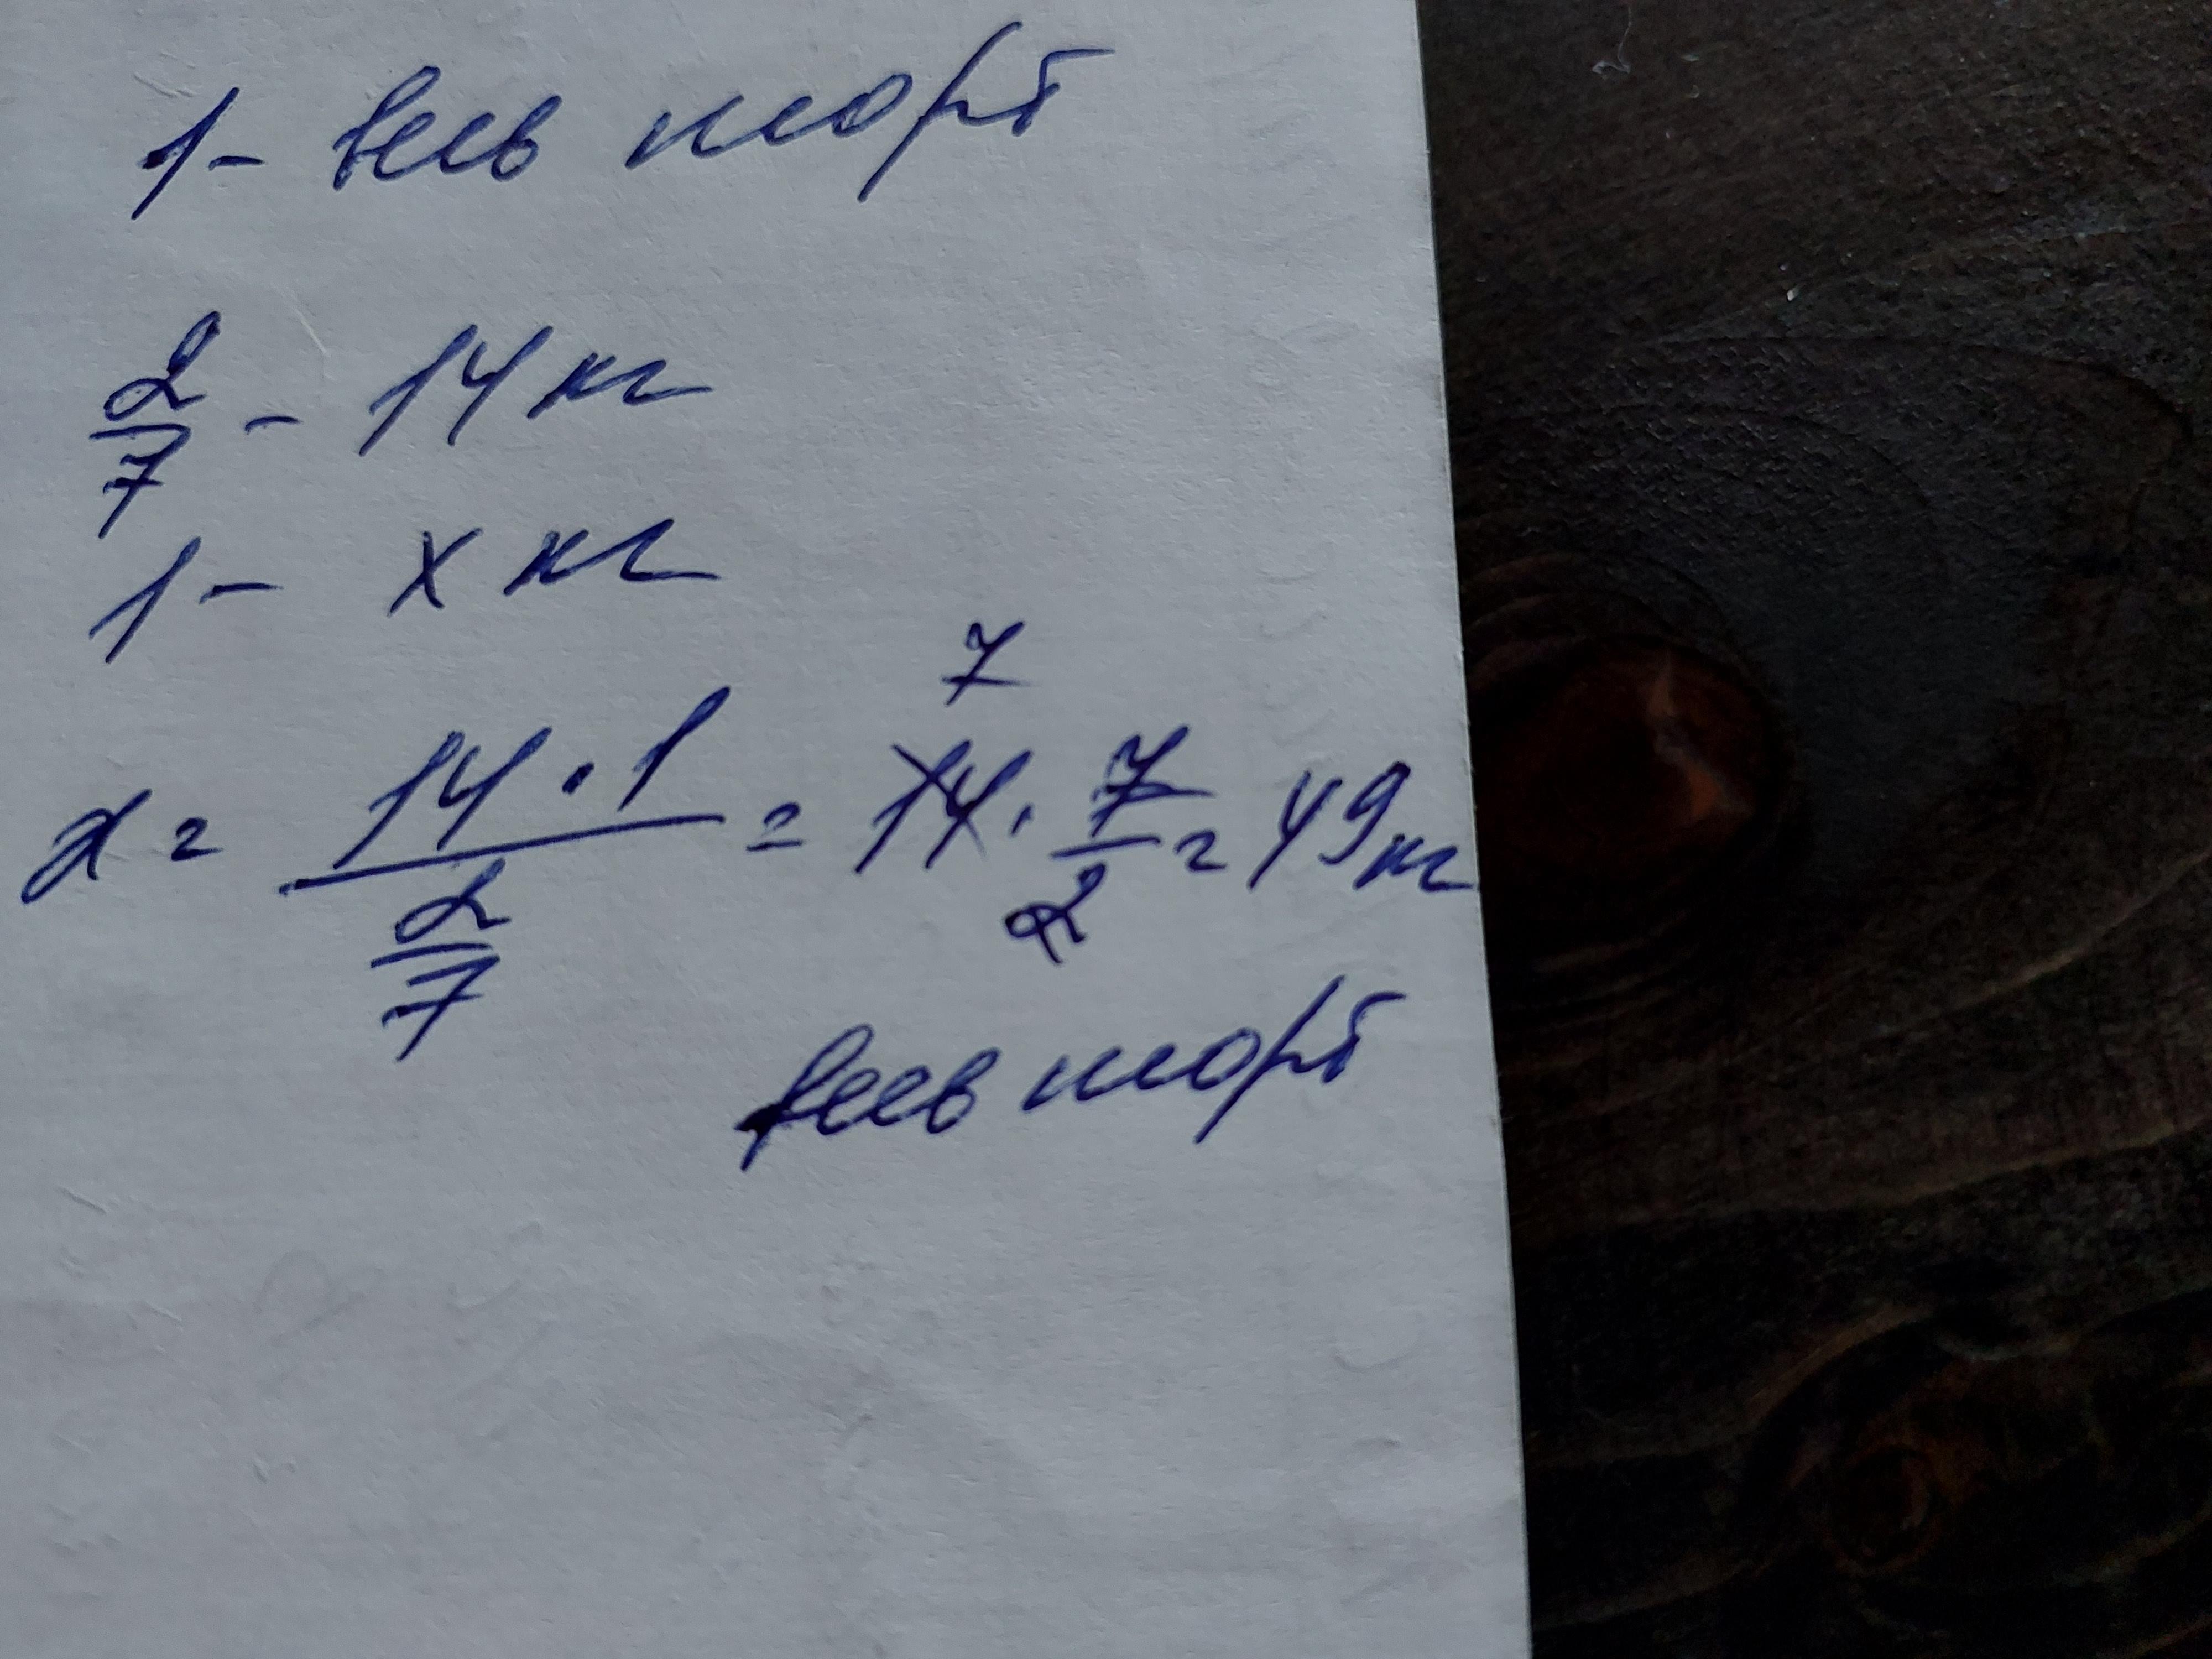 1 - весь торт
2/7 - 14 кг
1 - x кг
x = (14 · 1)/(2/7) = 14 · 7/2 = 49 кг
7
весь торт